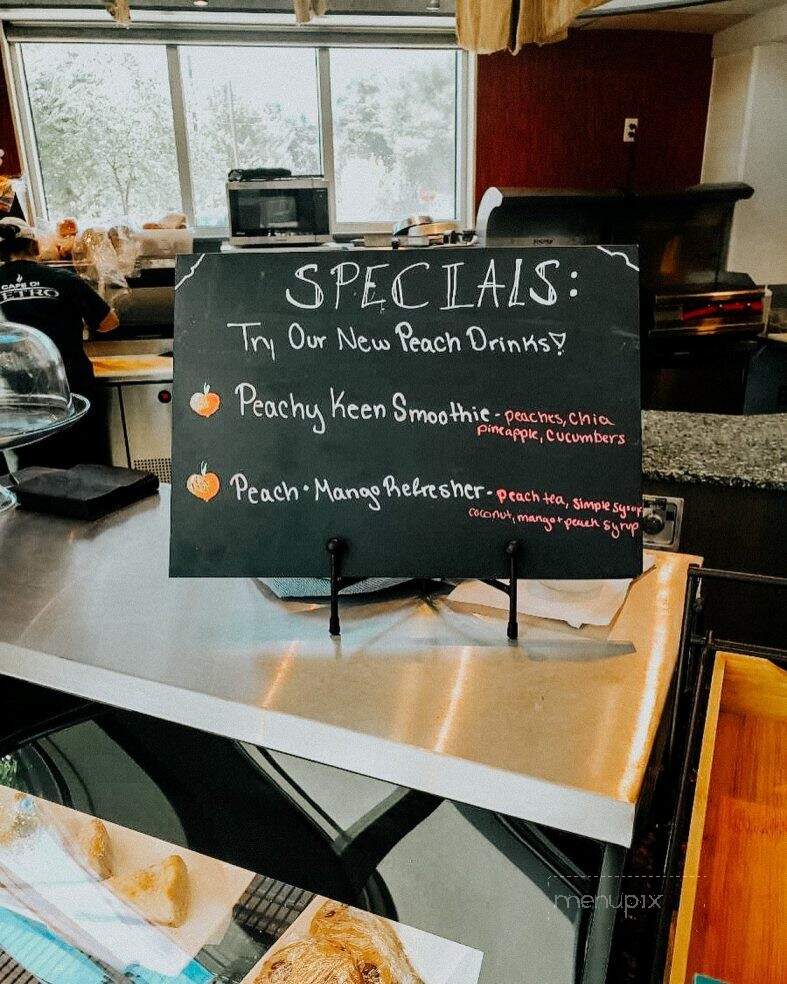 SPECIALS:
Try Our New Peach Drinks!
Peachy Keen Smoothie - peaches, chia
pineapple, cucumbers
Peach • Mango Refresher - peach tea, simple syrup
coconut, mango + peach syrup
CAFE DI
ETRO
menupix